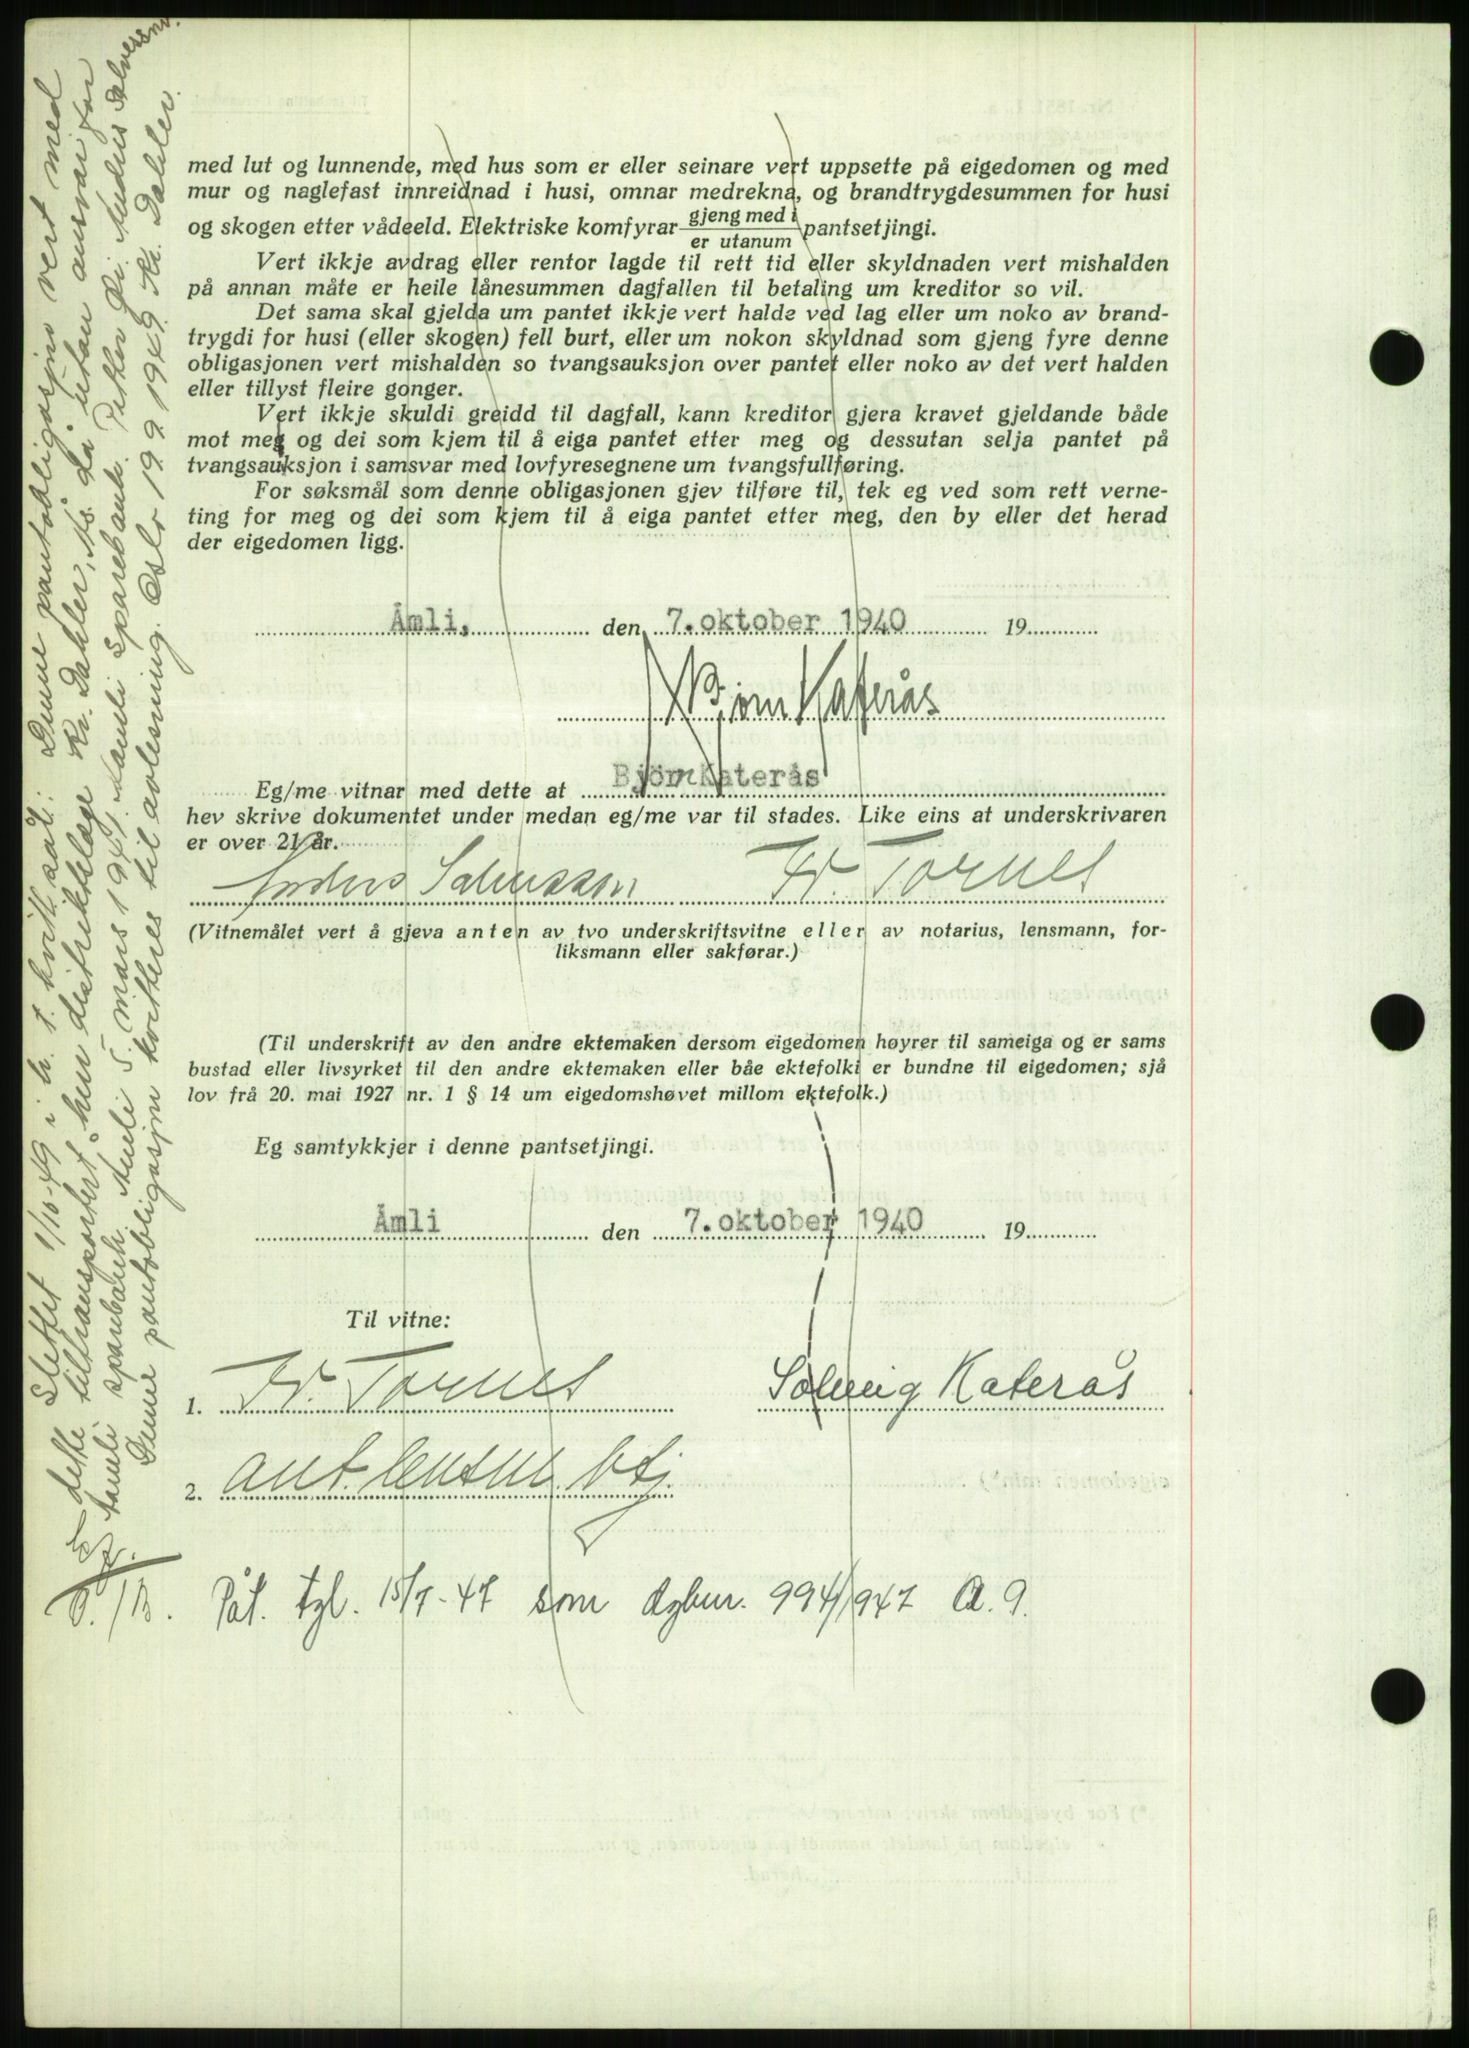 med lut og lunnende, med hus som er eller seinare vert uppsette på eigedomen og med
mur og naglefast innreidnad i husi, omnar medrekna, og brandtrygdesummen for husi
og skogen etter vådeeld. Elektriske komfyrar gjeng med i / er utanum pantsetjingi.
Vert ikkje avdrag eller rentor lagde til rett tid eller skyldnaden vert mishalden
på annan måte er heile lånesummen dagfallen til betaling um kreditor so vil.
Det sama skal gjelda um pantet ikkje vert halde ved lag eller um noko av brand-
trygdi for husi (eller skogen) fell burt, eller um nokon skyldnad som gjeng fyre denne
obligasjonen vert mishalden so tvangsauksjon over pantet eller noko av det vert halden
eller tillyst fleire gonger.
Vert ikkje skuldi greidd til dagfall, kann kreditor gjera kravet gjeldande både
mot meg og dei som kjem til å eiga pantet etter meg og dessutan selja pantet på
tvangsauksjon i samsvar med lovfyresegnene um tvangsfullføring.
For søksmål som denne obligasjonen gjev tilføre til, tek eg ved som rett verne-
ting for meg og dei som kjem til å eiga pantet etter meg, den by eller det herad
der eigedomen ligg.
Åmli, den 7. oktober 1940 19
Bjørn Katerås
Eg/me vitnar med dette at Björn Katerås
hev skrive dokumentet under medan eg/me var til stades. Like eins at underskrivaren
er over 21 år.
Anders Salvesson Kr. Tornes
(Vitnemålet vert å gjeva anten av tvo underskriftsvitne eller av notarius, lensmann, for-
liksmann eller sakførar.)
(Til underskrift av den andre ektemaken dersom eigedomen høyrer til sameiga og er sams
bustad eller livsyrket til den andre ektemaken eller båe ektefolki er bundne til eigedomen; sjå
lov frå 20. mai 1927 nr. 1 § 14 um eigedomshøvet millom ektefolk.)
Eg samtykkjer i denne pantsetjingi.
Åmli den 7. oktober 1940 19
Til vitne:
1. Kr. Tornes Solveig Katerås
2. ant. lensm. btj.
Påt. tgl. 15/7-47 som dgbnr. 994/1947 A. 9.
Slettet 1/10-49 i h. t. kvitt. sål.: Denne pantobligasjon vert med
dette tiltransportert hen distriktslege Kr. Dahler, Ås. då utan ansvar for
Åmli sparebank. Åmli 5. mars 1941. Åmli Sparebank. Petter Øi. Audus Salvesen.
Denne pantobligasjon kvitteres til avlesning. Oslo 19. 9. 1949. Kr. Dahler.